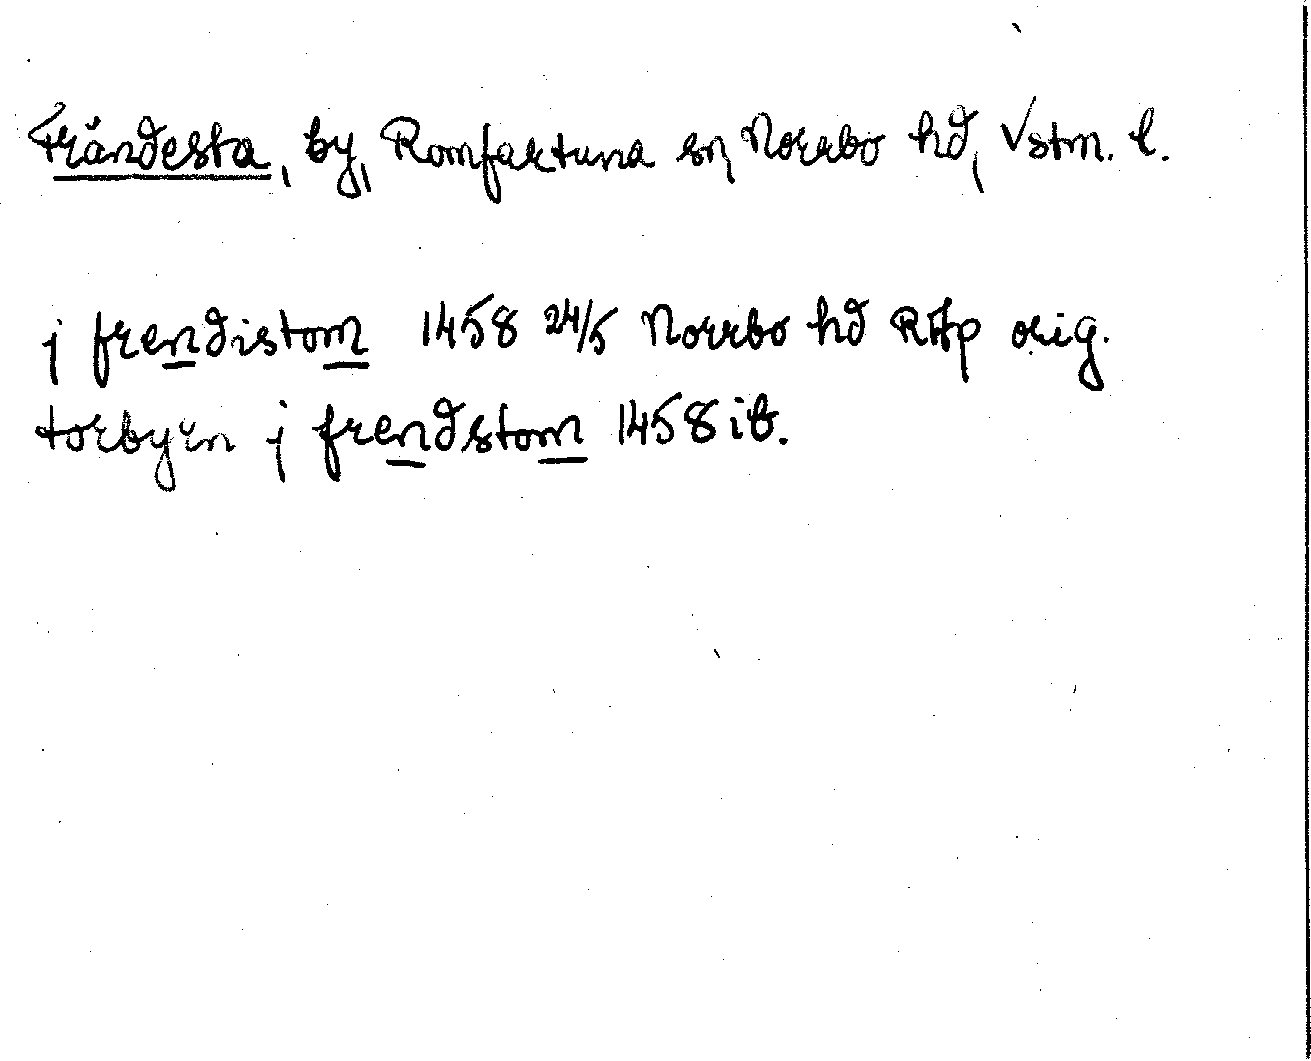 Frändesta, by, Romfartuna sn, Norrbo hd, Vstm. l.
j frendistom 1458 24/5 Norrbo hd RAp orig.
torbyrn j frendstom 1458 ib.